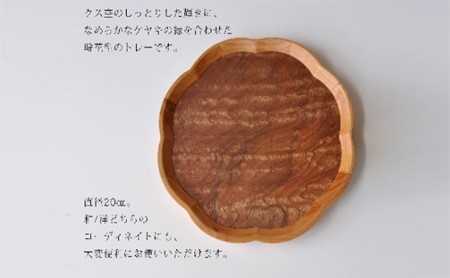 クス杢のしっとりした輝きに、
なめらかなケヤキの縁を合わせた
輪花型のトレーです。
直径20㎝。
和/洋どちらの
コーディネイトにも、
大変便利にお使いいただけます。